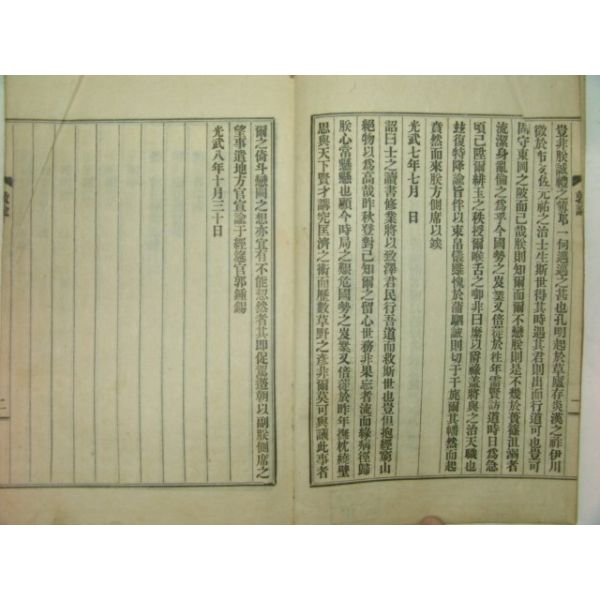 豈非朕誠禮之一何邁邁之甚也孔明起於草廬存炎漢之祚伊川
徵於治士生斯世得其時遇其君則出而行道可也豈可
固守東岡之陂而已哉朕則知爾而爾不戀朕則是不幾於荷篠沮溺者
流潔身亂倫之爲乎今國勢之岌業又倍蓰於往年需賢訪道時日爲急
頃已陞爾緋玉之秩授爾喉舌之啣非曰縻以爵祿盖將與之治天職也
玆復特降諭旨伴以東帛儀雖愧於蒲輪誼則切于干旄爾其幡然而起
賁然而來朕方側席以竢
光武七年七月 日
詔曰士之讀書修業將以致澤君民行吾道而救斯世也豈但抱經窮山
絕物以爲高哉昨秋登對已知爾之留心世務非果忘者流而緣病徑歸
朕心常懸懸也顧今時局之艱危國勢之岌業又倍蓰於昨年撫枕繞壁
思與天下賢才講究匡濟之術而歷數草野之彥非爾莫可與議此事者
二
爾之倚斗戀闕之想亦宜有不能恝然者其即促駕造朝以副朕側席之
望事遣地方官宣諭于經筵官郭鍾錫
光武八年十月三十日
二